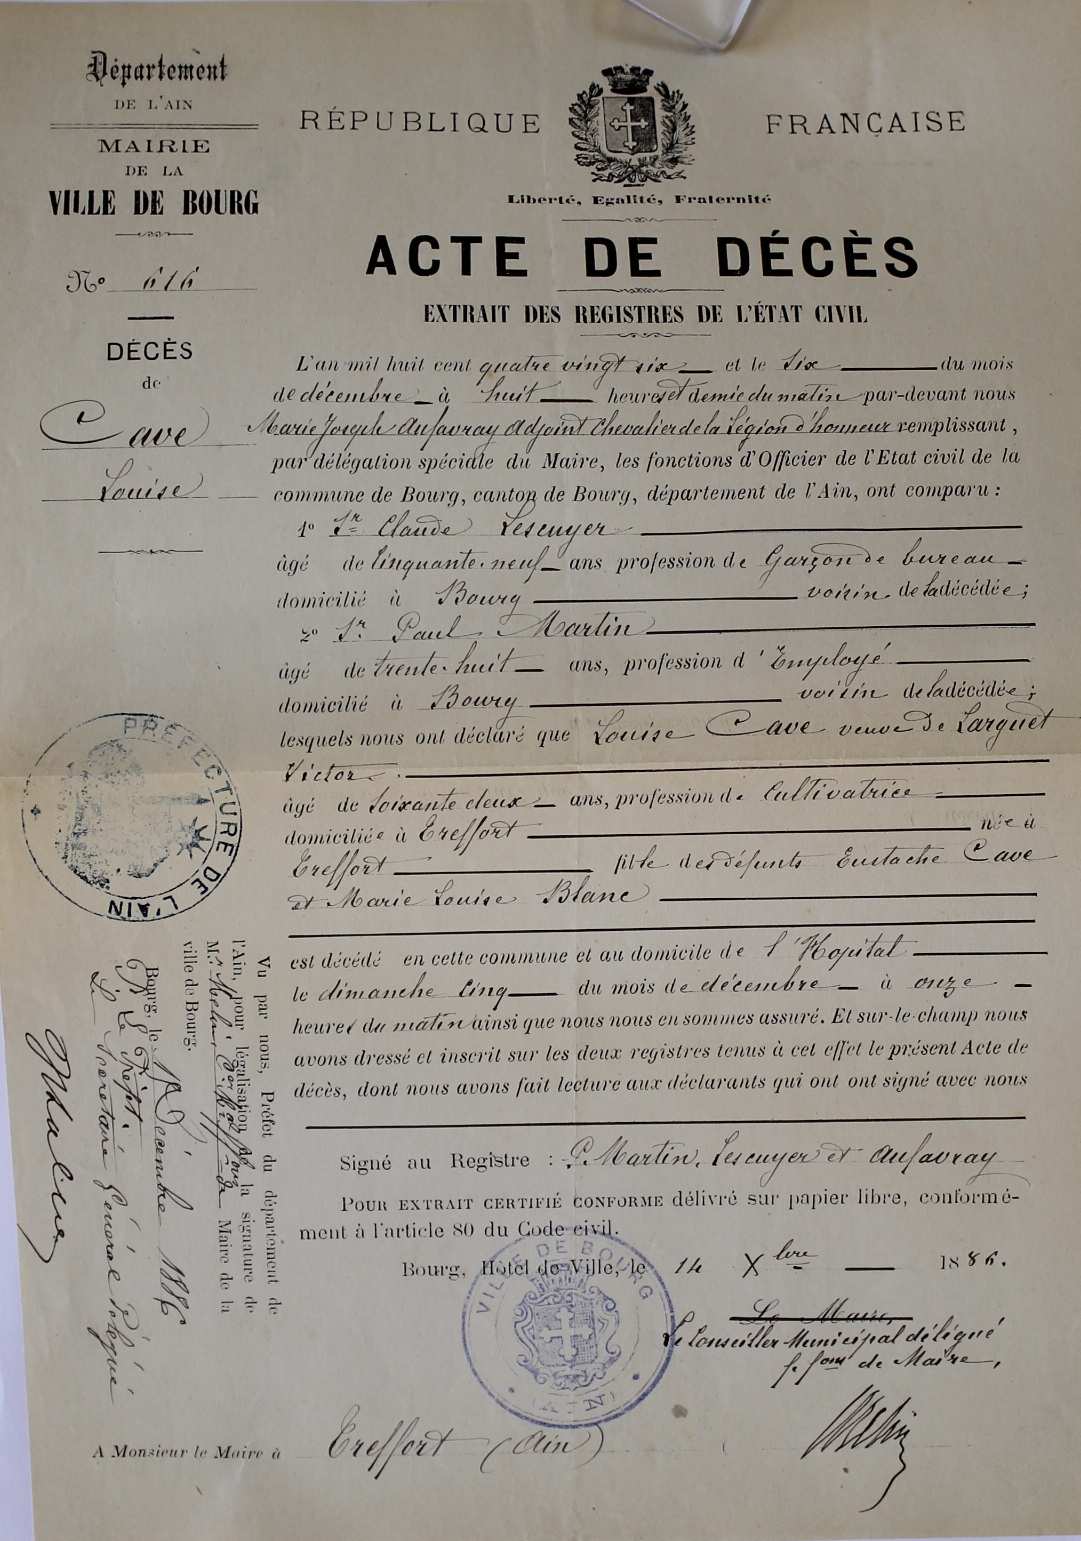 Département
DE L'AIN
MAIRIE
DE LA
VILLE DE BOURG
No 616
DÉCÈS
de
Cave
Louise
RÉPUBLIQUE FRANÇAISE
Liberté, Egalité, Fraternité
ACTE DE DÉCÈS
EXTRAIT DES REGISTRES DE L'ÉTAT CIVIL
L'an mil huit cent quatre vingt six et le six du mois
de décembre à huit heures et demie du matin par-devant nous
Marie Joseph Aufavray Adjoint Chevalier de la Légion d'honneur remplissant,
par délégation spéciale du Maire, les fonctions d'Officier de l'Etat civil de la
commune de Bourg, canton de Bourg, département de l'Ain, ont comparu :
1o Sr Claude Lescuyer
âgé de Cinquante-neuf ans profession de Garçon de bureau
domicilié à Bourg voisin de la décédée;
2o Sr. Paul Martin
âgé de trente-huit ans, profession d'Employé
domicilié à Bourg voisin de la décédée;
lesquels nous ont déclaré que Louise Cave veuve de Larguet
Victor
âgé de soixante deux ans, profession de Cultivatrice
domiciliée à Treffort née à
Treffort fille des défunts Eustache Cave
et Marie Louise Blanc
est décédé en cette commune et au domicile de l'Hopital
le dimanche Cinq du mois de décembre à onze
heures du matin ainsi que nous nous en sommes assuré. Et sur-le-champ nous
avons dressé et inscrit sur les deux registres tenus à cet effet le présent Acte de
décès, dont nous avons fait lecture aux déclarants qui ont ont signé avec nous
Signé au Registre : P. Martin, Lescuyer et Aufavray
POUR EXTRAIT CERTIFIÉ CONFORME délivré sur papier libre, conformé-
ment à l'article 80 du Code civil.
Bourg, Hôtel de Ville, le 14 Xbre 1886.
Le Maire,
Le Conseiller Municipal délégué
f. fons de Maire,
VILLE DE BOURG
(AIN)
A Monsieur le Maire à Treffort (Ain)
PRÉFECTURE DE L'AIN
Vu par nous, Préfet du département de
l'Ain, pour légalisation de la signature de
M. Maire de la
ville de Bourg.
Bourg, le Décembre 1886
Le Préfet.
Le Secrétaire Général Délégué